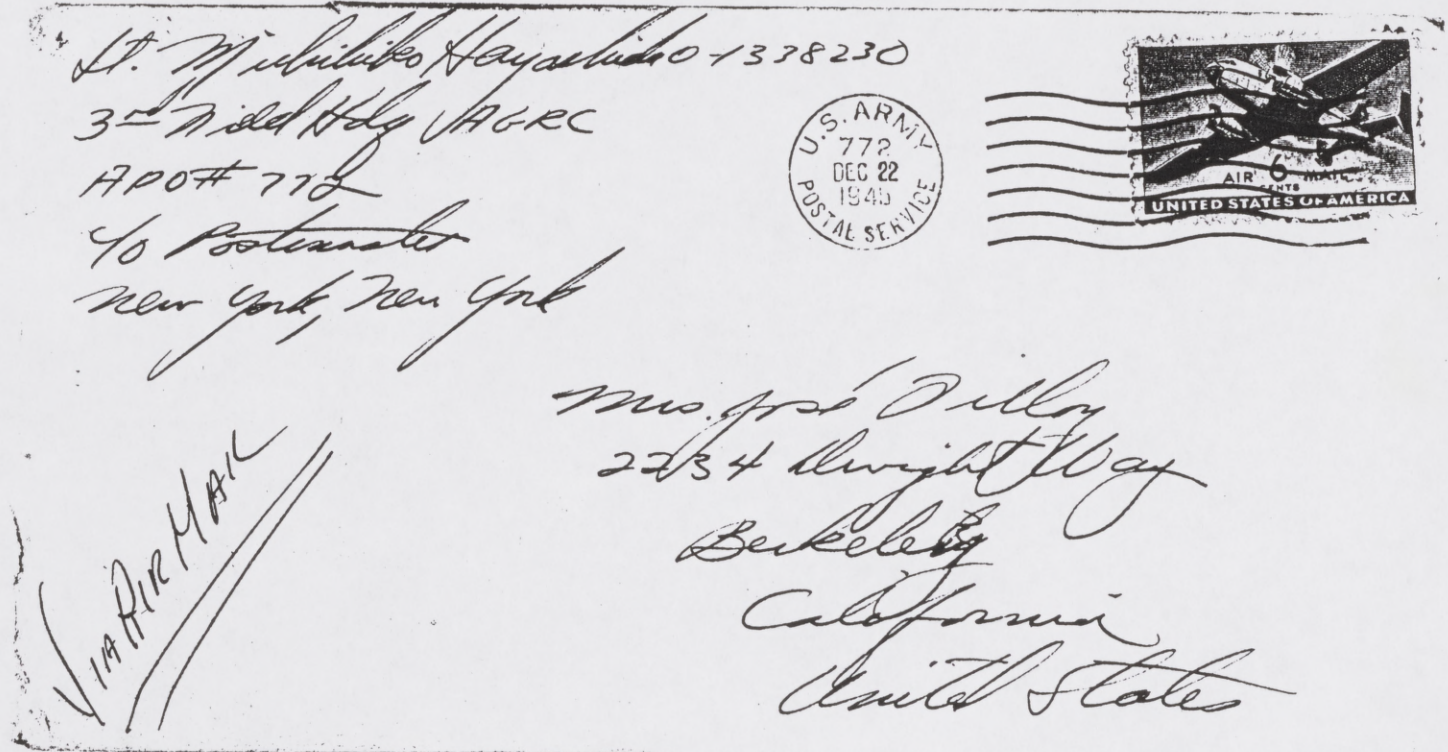 Lt. Michihiko Hayashida O-1338230
3rd Field Hdq AGRC
APO# 772
c/o Postmaster
New York, New York
U.S. ARMY
772
DEC 22
1945
POSTAL SERVICE
AIR 6 MAIL
CENTS
UNITED STATES OF AMERICA
Mrs. José
2234 Dwight Way
Berkeley
California
United States
VIA AIR MAIL